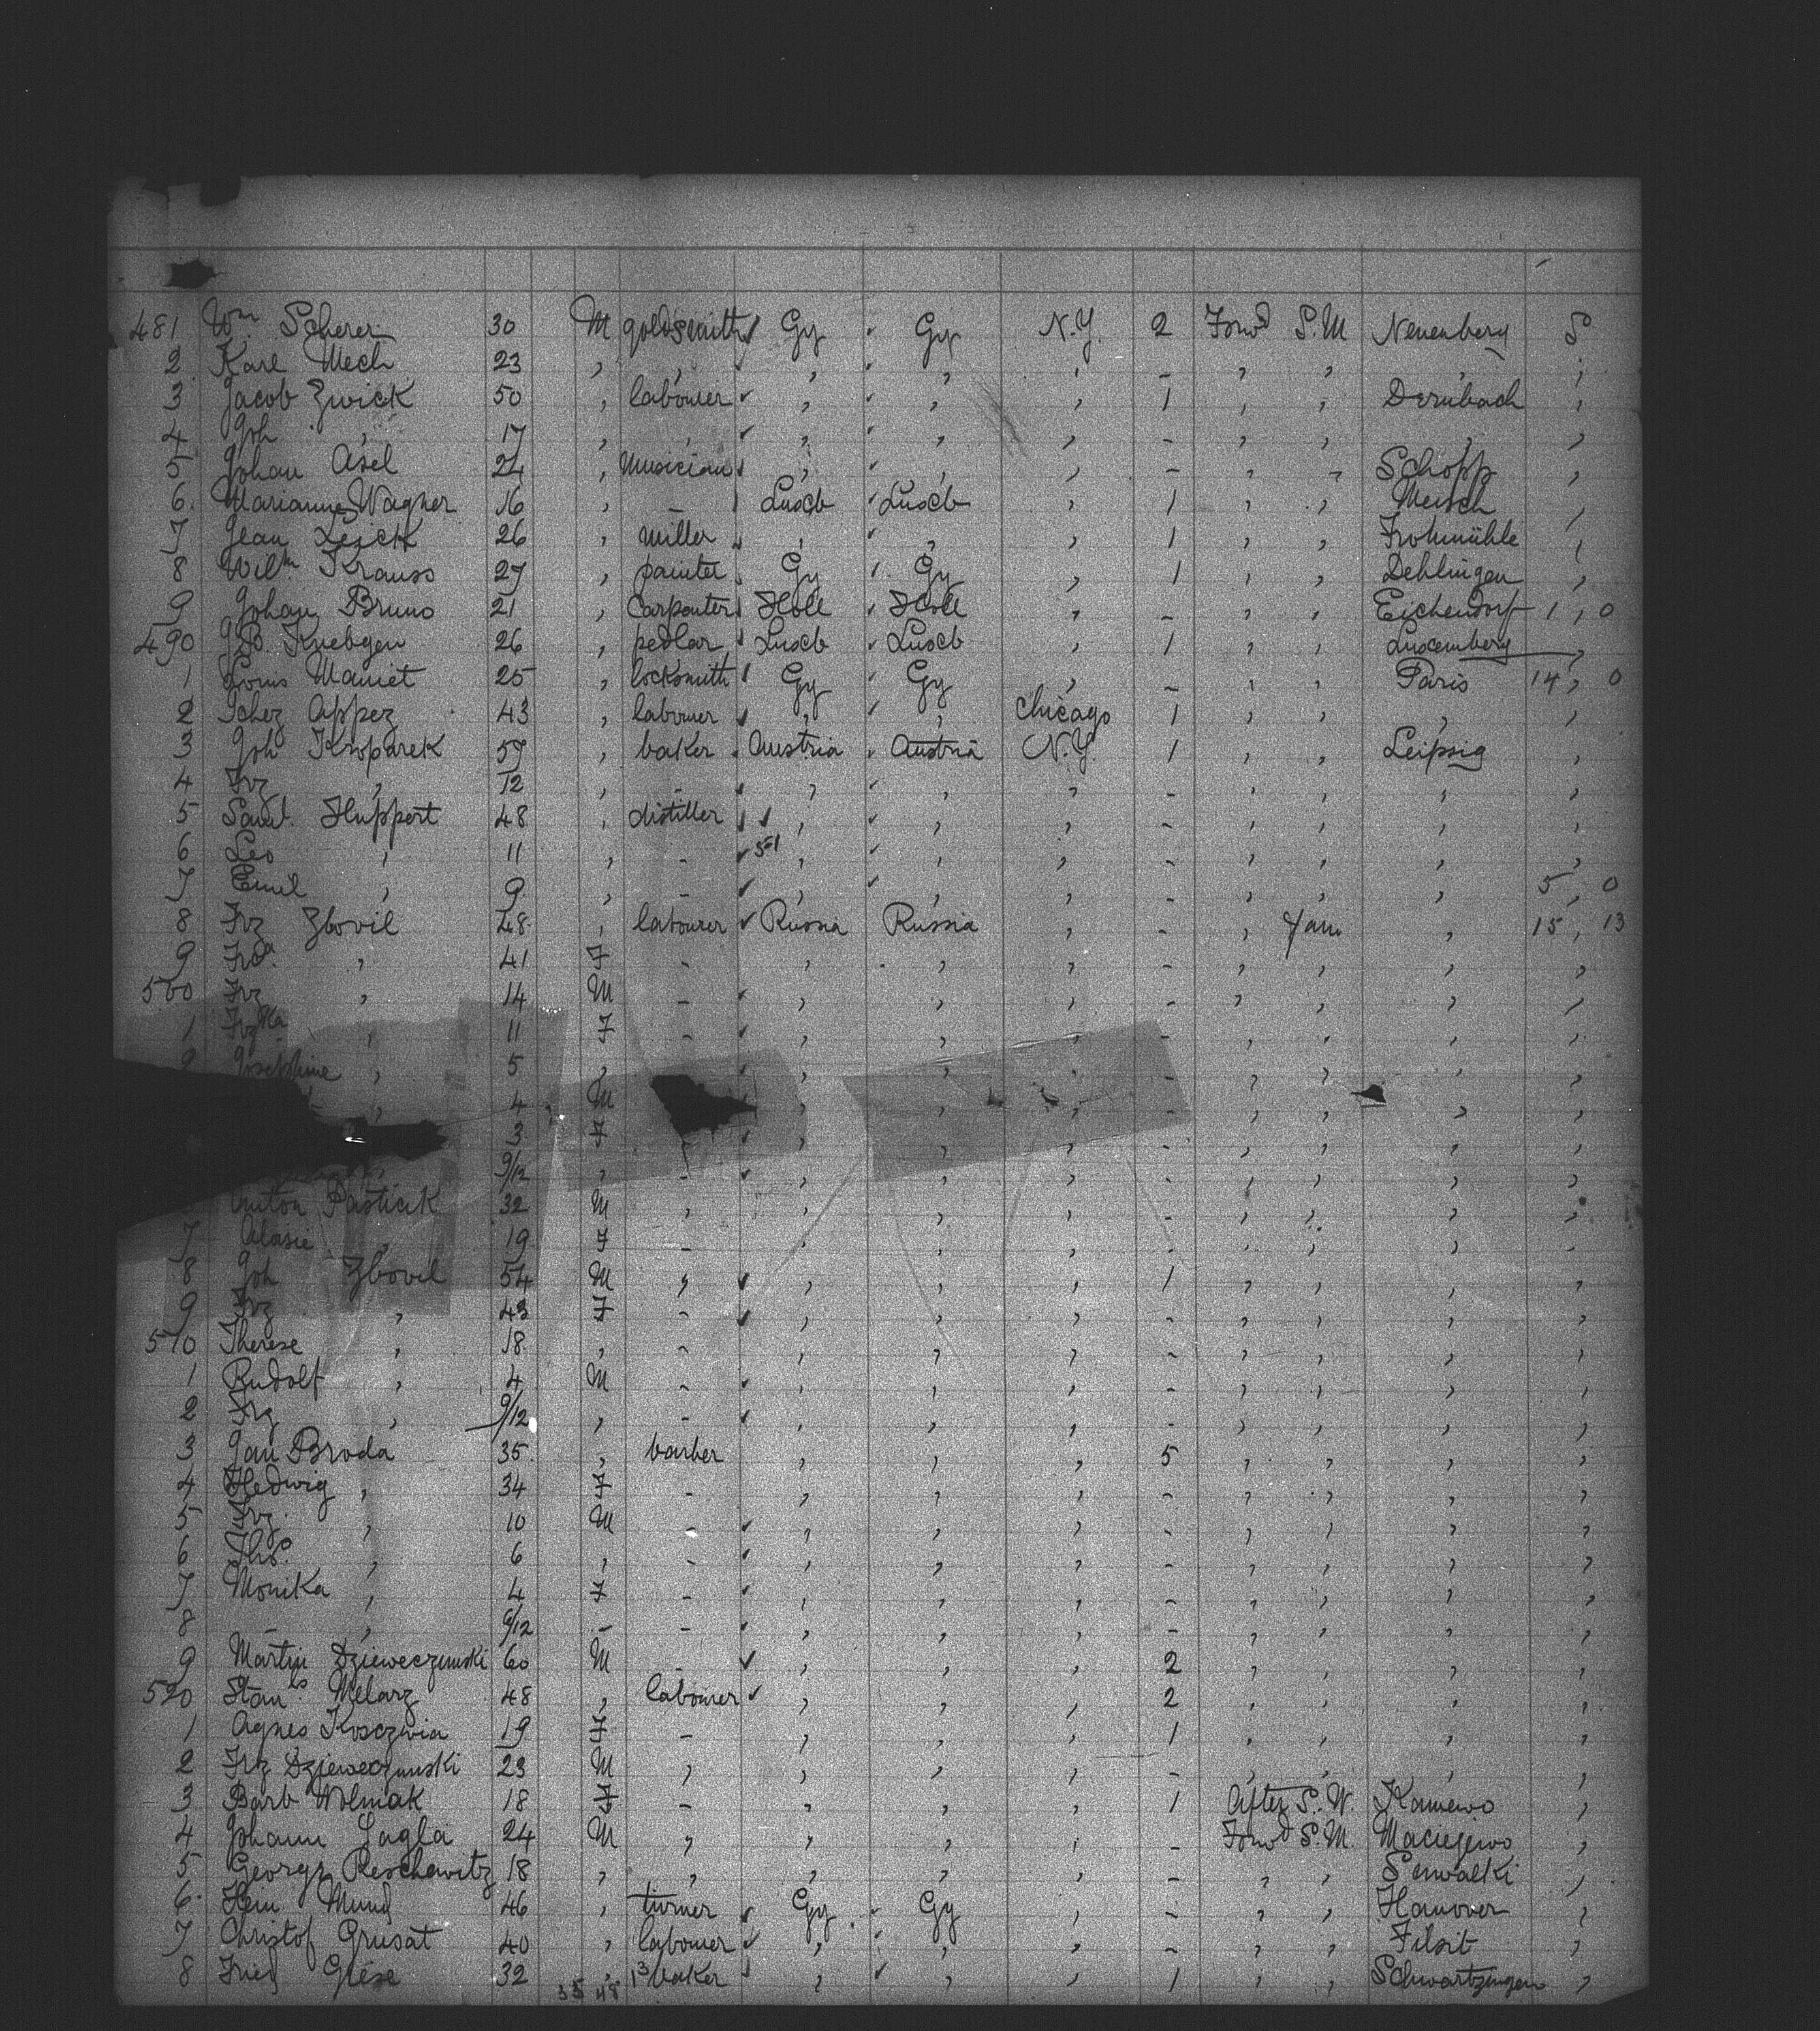 481 Wm Scherer 30 M goldsmith Gy Gy N.Y. 2 Forwd S.M Neuenberg S
2 Karl Mech 23 , , , , , - , , , ,
3 Jacob Zwick 50 , labourer , , , 1 , , Dernbach ,
4 Joh , 17 , , , , , - , , , ,
5 Johan Asel 24 , musician , , , - , , Schopp ,
6 Marianne Wagner 16 , - Luxb Luxb , 1 , , Mersch ,
7 Jean Leick 26 , miller , , , 1 , , Frohmühle ,
8 Wilm Krauss 27 , painter Gy Gy , 1 , , Dehlingen ,
9 Johan Bruno 21 , Carpenter Holl Holl , - , , Eichendorf 1 , 0
490 Knebgen 26 , pedlar Luxb Luxb , 1 , , Luxemberg ,
1 Louis Maniet 25 , locksmith Gy Gy , - , , Paris 14 , 0
2 Ichez Appez 43 , labourer , , Chicago 1 , , , ,
3 Joh Kroparek 57 , baker Austria Austria N.Y. 1 , , Leipsig ,
4 Frz , 12 , - , , , - , , , ,
5 Saml. Huppert 48 , distiller , , , - , , , ,
6 Leo , 11 , - , , , - , , , ,
7 Emil , 9 , - , , , - , , , 5 , 0
8 Frz Zbovil 48 , labourer Russia Russia , - , Fam , 15 , 13
9 Frca , 41 F - , , , - , , , ,
500 Frz , 14 M - , , , - , , , ,
1 Frzka , 11 F - , , , - , , , ,
2 Josephine , 5 , , , , - , , , ,
, 4 M , , , - , , , ,
3 F , , , - , , , ,
9/12 , - , , , - , , , ,
Anton Pasticik 32 M , , , , - , , , ,
7 Alasie , 19 F - , , , - , , , ,
8 Joh Zbovil 54 M , , , , 1 , , , ,
9 Frz , 43 F - , , , - , , , ,
510 Therese , 18 , - , , , - , , , ,
1 Rudolf , 4 M - , , , - , , , ,
2 Frz , 9/12 , - , , , - , , , ,
3 Jan Broda 35 , barber , , , 5 , , , ,
4 Hedwig , 34 F - , , , - , , , ,
5 Frz , 10 M - , , , - , , , ,
6 Ths. , 6 , - , , , - , , , ,
7 Monika , 4 F - , , , - , , , ,
8 - , 9/12 - - , , , - , , , ,
9 Martin Dzieweczunski 60 M - , , , 2 , , , ,
520 Stanls Melarz 48 , labourer , , , 2 , , , ,
1 Agnes Kosczwia 19 F - , , , 1 , , , ,
2 Frz Dzieweczunski 23 M , , , , - , , , ,
3 Barb Wolniak 18 F - , , , 1 After S.W. Kamewo ,
4 Johann Lagla 24 M , , , , - Forwd S.M. Maciejewo ,
5 Georgs Reschewitz 18 , , , , , - , , Suwalki ,
6 Hein Mund 46 , turner Gy Gy , - , , Hanover ,
7 Christof Grusat 40 , labourer , , , - , , Tilsit ,
8 Fried Giese 32 , baker , , , 1 , , Schwartzingen ,